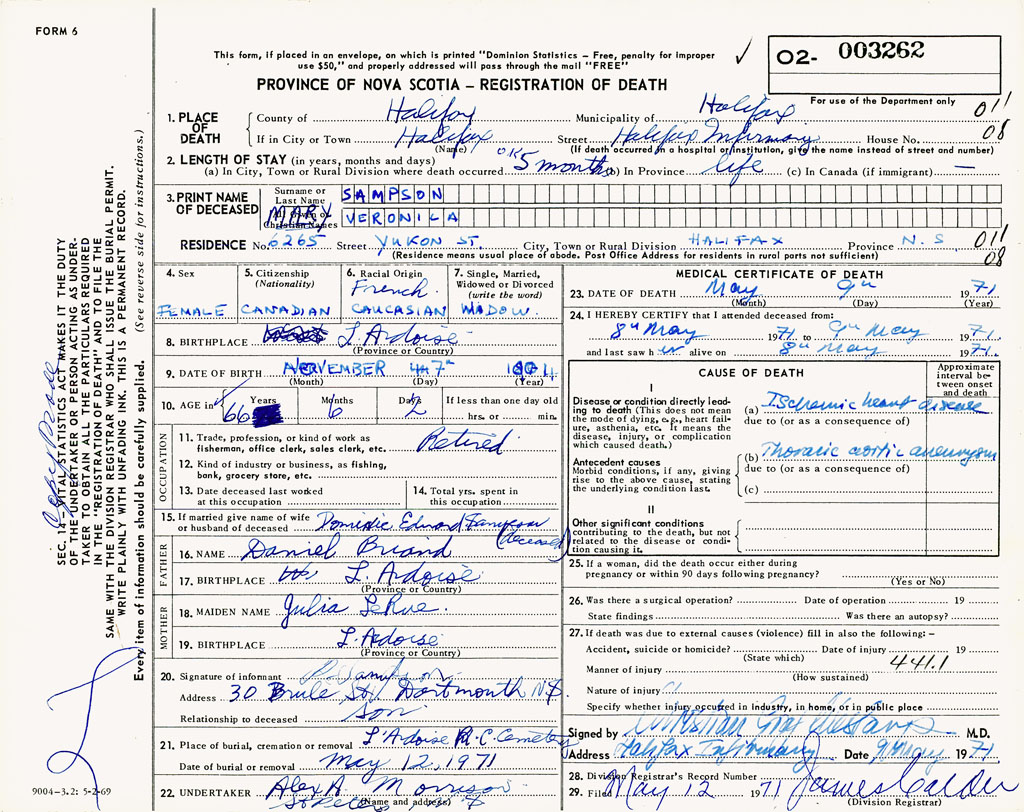 FORM 6
This form, if placed in an envelope, on which is printed "Dominion Statistics – Free, penalty for improper
use $50," and properly addressed will pass through the mail "FREE"
02- 003262
PROVINCE OF NOVA SCOTIA – REGISTRATION OF DEATH
For use of the Department only
1. PLACE OF DEATH
County of Halifax Municipality of Halifax 011
If in City or Town Halifax Street Halifax Infirmary House No. 08
(Name) (If death occurred in a hospital or institution, give the name instead of street and number)
2. LENGTH OF STAY (in years, months and days)
(a) In City, Town or Rural Division where death occurred 5 months (b) In Province life (c) In Canada (if immigrant) —
3. PRINT NAME OF DECEASED
Surname or Last Name SAMPSON
MARY VERONICA
Christian Names
RESIDENCE No. 6265 Street YUKON ST. City, Town or Rural Division HALIFAX Province N.S. 011
(Residence means usual place of abode. Post Office Address for residents in rural parts not sufficient) 08
4. Sex
FEMALE
5. Citizenship
(Nationality)
CANADIAN
6. Racial Origin
French
CAUCASIAN
7. Single, Married,
Widowed or Divorced
(write the word)
WIDOW
8. BIRTHPLACE L'Ardoise
(Province or Country)
9. DATE OF BIRTH
(Month) (Day) (Year)
10. AGE in Years 66 Months 6 Days 2 If less than one day old
hrs. or min.
OCCUPATION
11. Trade, profession, or kind of work as
fisherman, office clerk, sales clerk, etc. Retired
12. Kind of industry or business, as fishing,
bank, grocery store, etc.
13. Date deceased last worked
at this occupation
14. Total yrs. spent in
this occupation
15. If married give name of wife
or husband of deceased Edward
(deceased)
FATHER
16. NAME Daniel Briand
17. BIRTHPLACE L'Ardoise
(Province or Country)
MOTHER
18. MAIDEN NAME Julia LeRue
19. BIRTHPLACE L'Ardoise
(Province or Country)
20. Signature of informant
Address 30 Brule St, Dartmouth NS
Relationship to deceased son
21. Place of burial, cremation or removal L'Ardoise R.C. Cemetery
Date of burial or removal May 12, 1971
22. UNDERTAKER Alex A. Morrison
(Name and address)
MEDICAL CERTIFICATE OF DEATH
23. DATE OF DEATH May 9th 1971
(Month) (Day) (Year)
24. I HEREBY CERTIFY that I attended deceased from:
8th May 1971 to 9th May 1971
and last saw her alive on 8th May 1971.
CAUSE OF DEATH
Approximate interval between onset and death
I
Disease or condition directly leading to death (This does not mean
the mode of dying, e.g., heart failure, asthenia, etc. It means the
disease, injury, or complication
which caused death.)
(a) Ischaemic heart disease
due to (or as a consequence of)
Antecedent causes
Morbid conditions, if any, giving
rise to the above cause, stating
the underlying condition last.
(b) Thoracic aortic aneurysm
due to (or as a consequence of)
(c)
II
Other significant conditions
contributing to the death, but not
related to the disease or condition causing it.
25. If a woman, did the death occur either during
pregnancy or within 90 days following pregnancy?
(Yes or No)
26. Was there a surgical operation? Date of operation 19
State findings Was there an autopsy?
27. If death was due to external causes (violence) fill in also the following: –
Accident, suicide or homicide? Date of injury 19
(State which) 441.1
Manner of injury
(How sustained)
Nature of injury
Specify whether injury occurred in industry, in home, or in public place
Signed by M.D.
Address Halifax Infirmary Date 9 May 1971
28. Division Registrar's Record Number
29. Filed May 12 1971 James Calder
Division Registrar
SEC. 14 – VITAL STATISTICS ACT MAKES IT THE DUTY
OF THE UNDERTAKER OR PERSON ACTING AS UNDERTAKER TO OBTAIN ALL THE PARTICULARS REQUIRED
IN THE "REGISTRATION OF DEATH" AND TO FILE THE
SAME WITH THE DIVISION REGISTRAR WHO SHALL ISSUE THE BURIAL PERMIT.
WRITE PLAINLY WITH UNFADING INK. THIS IS A PERMANENT RECORD.
Every item of information should be carefully supplied. (See reverse side for instructions.)
9004-3.2: 5-2-69